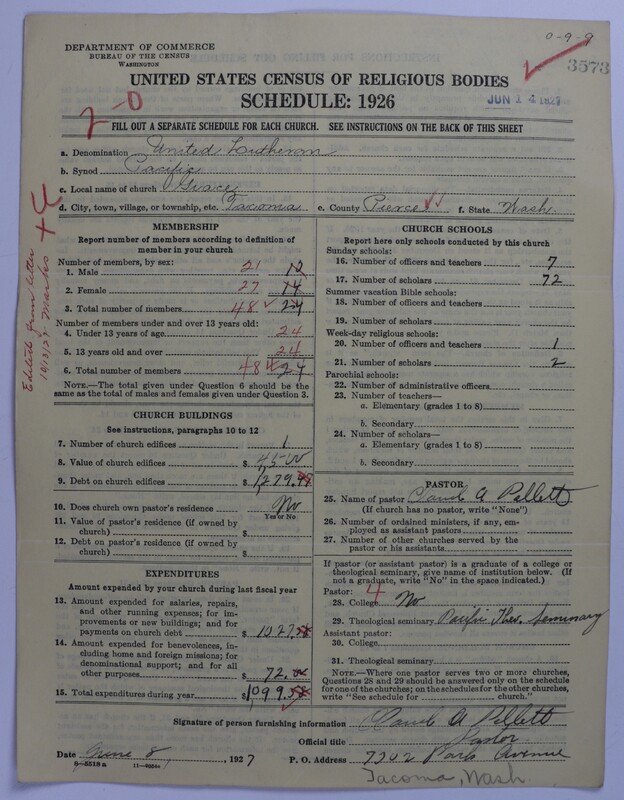 0-9-9
3573
DEPARTMENT OF COMMERCE
BUREAU OF THE CENSUS
WASHINGTON
UNITED STATES CENSUS OF RELIGIOUS BODIES
SCHEDULE: 1926
JUN 14 1927
2-0
FILL OUT A SEPARATE SCHEDULE FOR EACH CHURCH. SEE INSTRUCTIONS ON THE BACK OF THIS SHEET
a. Denomination United Lutheran
b. Synod Pacific
c. Local name of church Grace
d. City, town, village, or township, etc. Tacoma e. County Pierce f. State Wash.
Edited from letter
10/13/27 Marks
MEMBERSHIP
Report number of members according to definition of
member in your church
Number of members, by sex:
1. Male 21 12
2. Female 27 14
3. Total number of members 48 24
Number of members under and over 13 years old:
4. Under 13 years of age 24
5. 13 years old and over 24
6. Total number of members 48 24
NOTE.—The total given under Question 6 should be
the same as the total of males and females given under Question 3.
CHURCH BUILDINGS
See instructions, paragraphs 10 to 12
7. Number of church edifices 1
8. Value of church edifices $ 4,500
9. Debt on church edifices $ 1,279.
10. Does church own pastor's residence No
Yes or No
11. Value of pastor's residence (if owned by
church) $
12. Debt on pastor's residence (if owned by
church) $
EXPENDITURES
Amount expended by your church during last fiscal year
13. Amount expended for salaries, repairs,
and other running expenses; for im-
provements or new buildings; and for
payments on church debt $ 1027.58
14. Amount expended for benevolences, in-
cluding home and foreign missions; for
denominational support; and for all
other purposes $ 72.00
15. Total expenditures during year $ 1099.58
CHURCH SCHOOLS
Report here only schools conducted by this church
Sunday schools:
16. Number of officers and teachers 7
17. Number of scholars 72
Summer vacation Bible schools:
18. Number of officers and teachers
19. Number of scholars
Week-day religious schools:
20. Number of officers and teachers 1
21. Number of scholars 2
Parochial schools:
22. Number of administrative officers
23. Number of teachers—
a. Elementary (grades 1 to 8)
b. Secondary
24. Number of scholars—
a. Elementary (grades 1 to 8)
b. Secondary
PASTOR
25. Name of pastor Claude A Pellett
(If church has no pastor, write "None")
26. Number of ordained ministers, if any, em-
ployed as assistant pastors
27. Number of other churches served by the
pastor or his assistants
If pastor (or assistant pastor) is a graduate of a college or
theological seminary, give name of institution below. (If
not a graduate, write "No" in the space indicated.)
Pastor: 4
28. College No
29. Theological seminary Pacific Theo. Seminary
Assistant pastor:
30. College
31. Theological seminary
NOTE.—Where one pastor serves two or more churches,
Questions 28 and 29 should be answered only on the schedule
for one of the churches; on the schedules for the other churches,
write "See schedule for church."
Signature of person furnishing information Claude A Pellett
Official title Pastor
Date June 8, 1927 P. O. Address 7302 Park Avenue
8-5518a
Tacoma, Wash.